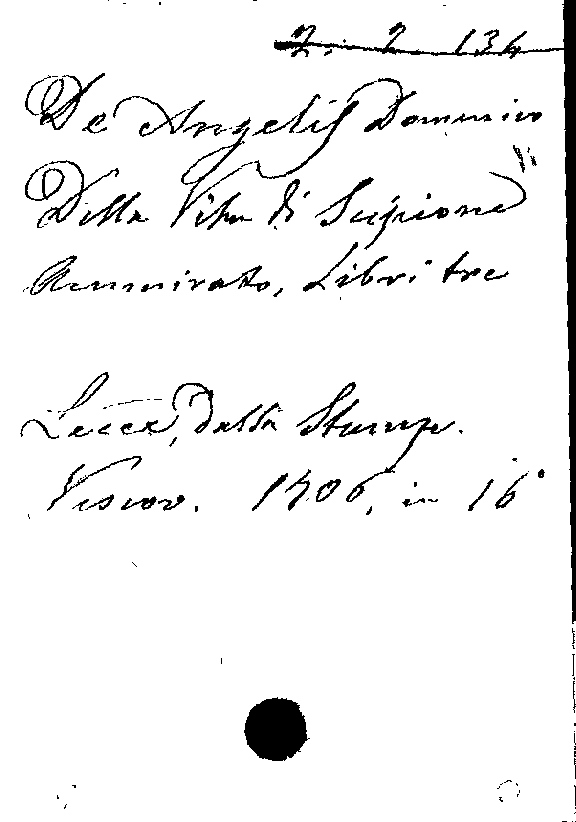 2. 2. 134
De Angelis Domenico
Della Vita di Scipione
Ammirato, Libri tre
Lecce, dalla Stamp.
Vescov. 1706, in 16°